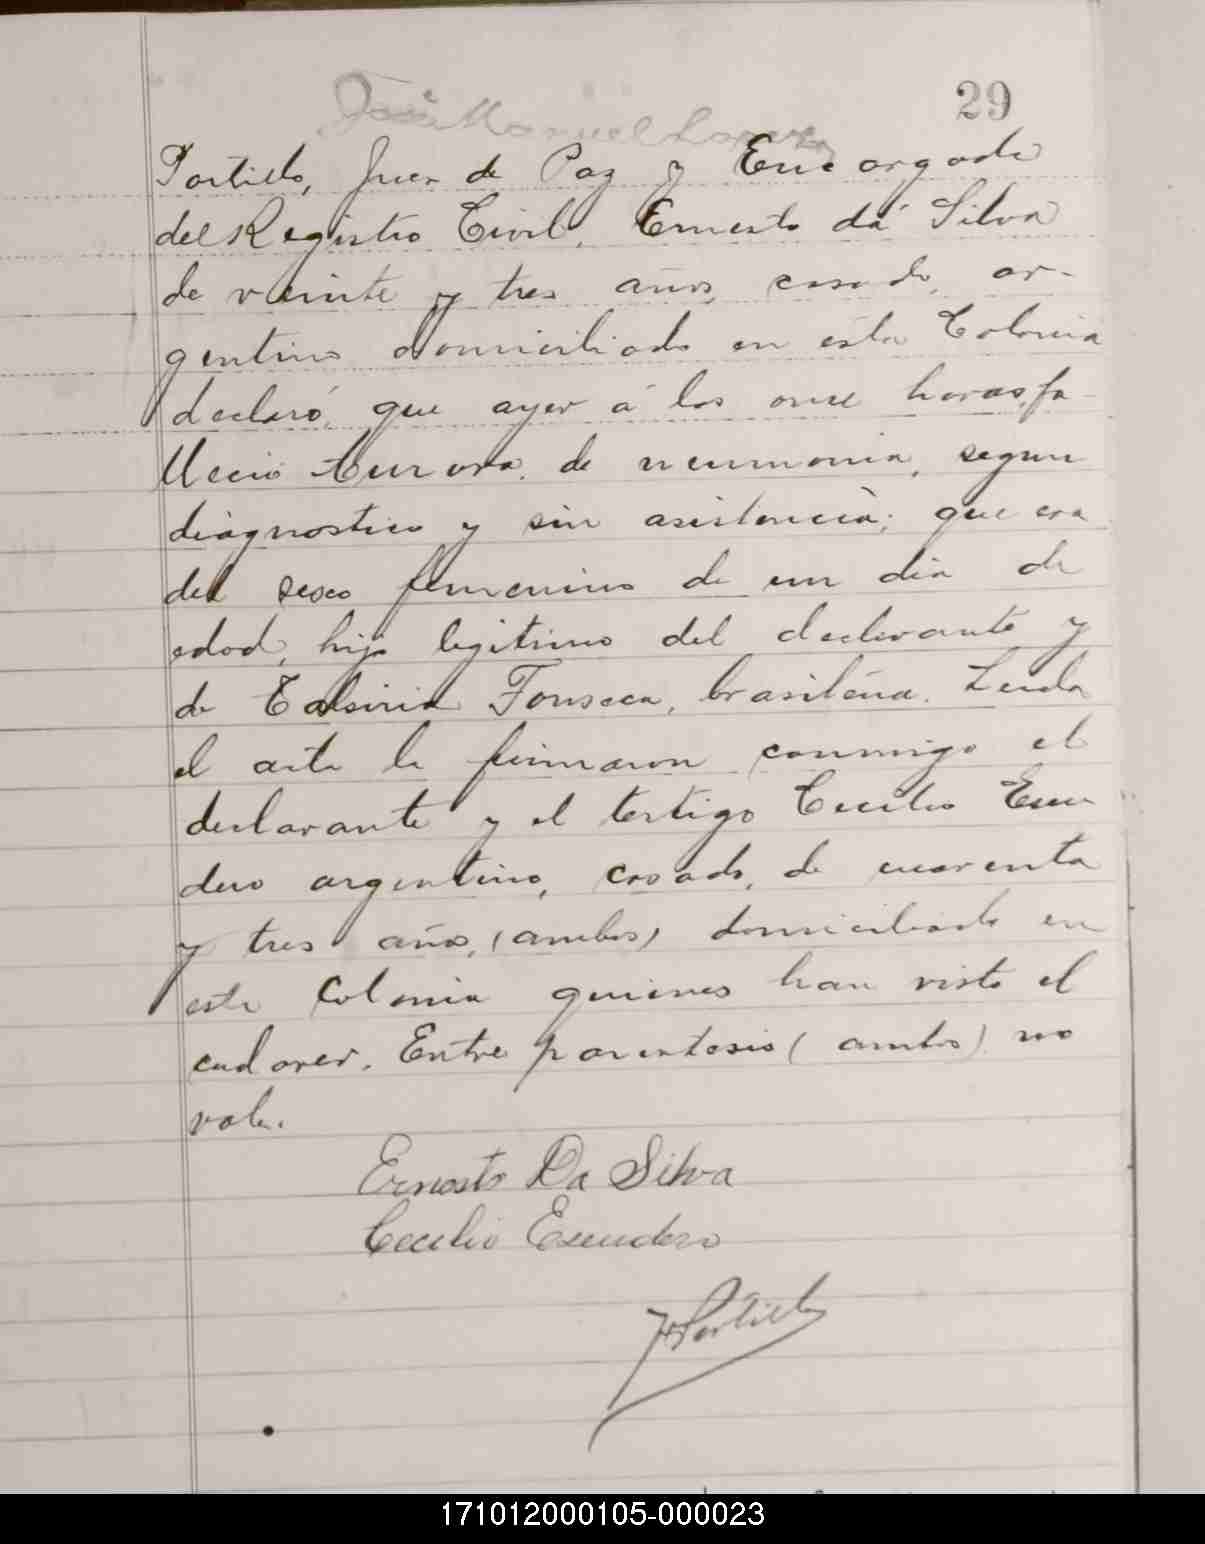 29
José Manuel
Portillo, Juez de Paz y Encargado
del Registro Civil, Ernesto dá Silva
de veinte y tres años, casado, ar-
gentino domiciliado en esta Colonia
declaró, que ayer á las once horas, fa
lleció Aurora, de neumonia, segun
diágnostico y sin asistencià; que era
del sexo femenino de un dia de
edad, hija legitimo del declarante y
de Fonseca, brasileña. Leida
el acta la firmaron conmigo el
declarante y el testigo Cecilio Escu
dero argentino, casado, de cuarenta
y tres años, (ambos) domiciliado en
esta Colonia quienes han visto el
cadaver. Entre parentesis (ambos) no
vale.
Ernesto Da Silva
Cecilio Escudero
Portillo
171012000105-000023